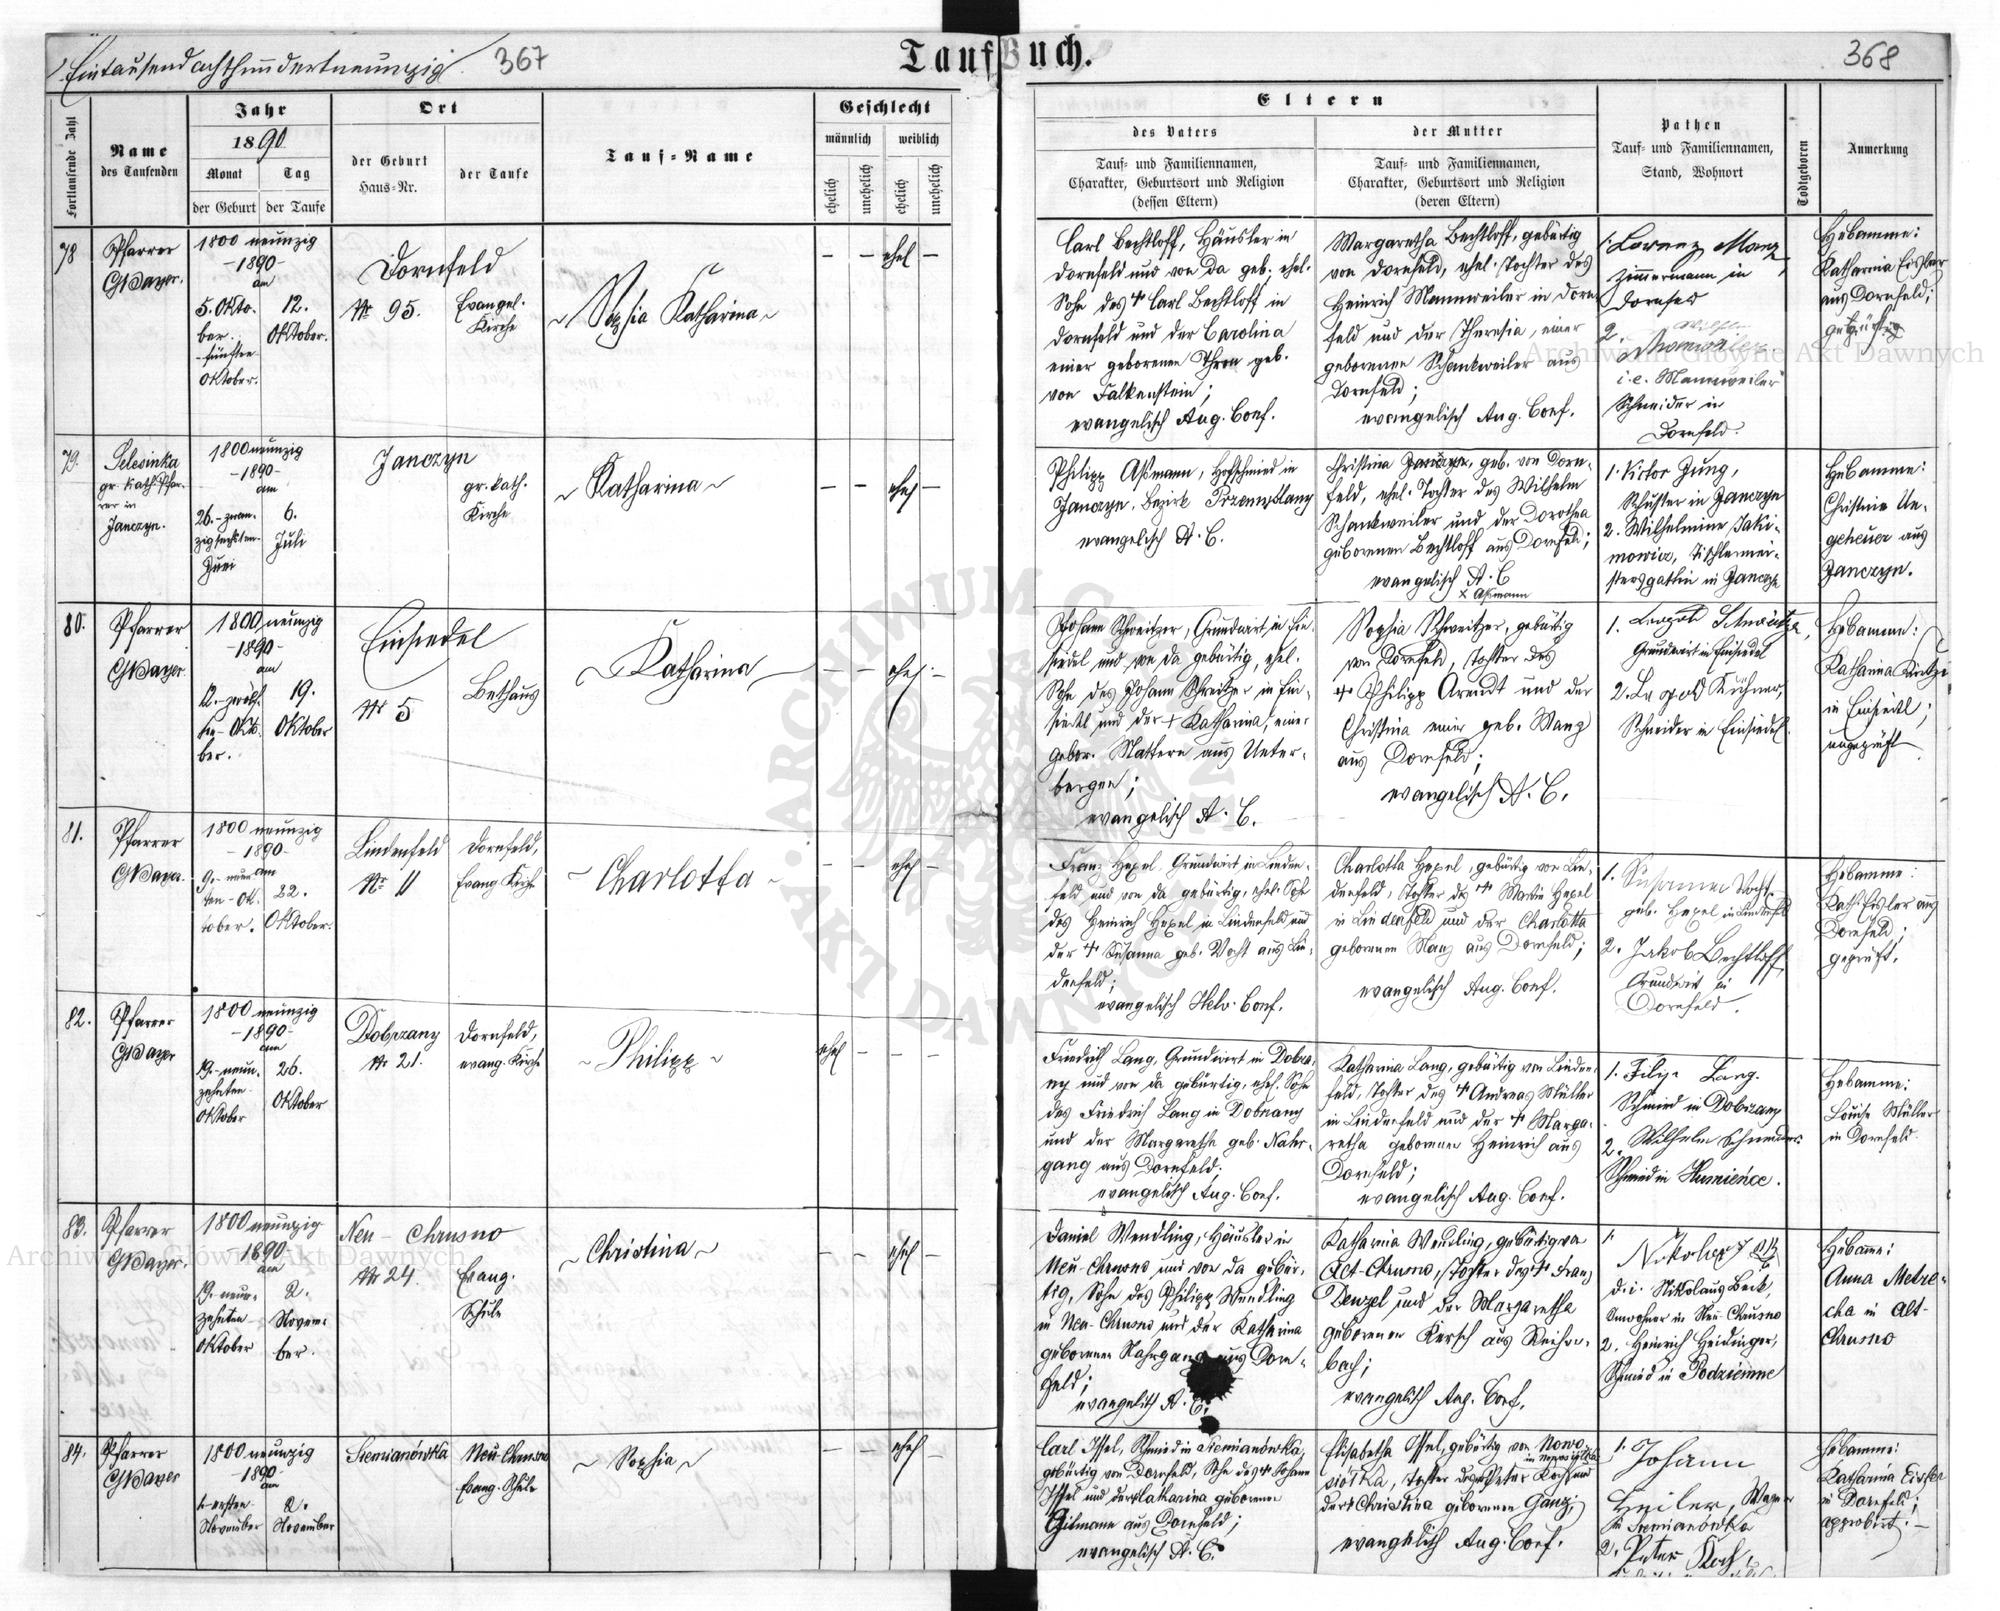 Eintausendachthundertneunzig. 367
Tauf Buch.
368
Fortlaufende Zahl
Name
des Taufenden
Jahr
1890
Monat Tag
der Geburt der Taufe
Ort
der Geburt
Haus-Nr.
der Taufe
Tauf-Name
Geschlecht
männlich weiblich
ehelich unehelich ehelich unehelich
Eltern
des Vaters
Tauf- und Familiennamen,
Charakter, Geburtsort und Religion
(dessen Eltern)
der Mutter
Tauf- und Familiennamen,
Charakter, Geburtsort und Religion
(deren Eltern)
Pathen
Tauf- und Familiennamen,
Stand, Wohnort
Todtgeboren
Anmerkung
78
Pfarrer
GMayer.
1800 neunzig
-1890-
am
5. Okto-
ber.
-fünften
Oktober.
12.
Oktober.
Dornfeld
Nr 95.
Evangel.
Kirche
~ Sophia Katharina ~
— — ehel —
Carl Bechtloff, Häusler in
Dornfeld und von da geb. ehel.
Sohn des + Carl Bechtloff in
Dornfeld und der Carolina
einer geborenen Thron geb.
von Falkenstein;
evangelisch Aug. Conf.
Margaretha Bechtloff, gebürtig
von Dornfeld, ehel. Tochter des
Heinrich Mannweiler in Dorn
feld und der Theresia, einer
geborenen Schankweiler aus
Dornfeld;
evangelisch Aug. Conf.
1. Lorenz Manz
Zimmermann in
Dornfeld
2.
i.e. Mannweiler
Schneider in
Dornfeld.
Hebamme:
Katharina Eisler
aus Dornfeld;
79.
Selesinka
gr. kath. Pfar-
rer in
Janczyn.
1800 neunzig
-1890-
am
26.-zwan-
zigsechsten-
Juni
6.
Juli
Janczyn
gr. kath.
Kirche
~ Katharina ~
— — ehel —
Philipp Aßmann, Hofschmied in
Janczyn, Bezirk Przemyslany
evangelisch A. C.
Christina geb. von Dorn-
feld, ehel. Tochter des Wilhelm
Schankweiler und der Dorothea
geborenen Bechtloff aus Dornfeld;
evangelisch A. C
x Aßmann
1. Victor Jung,
Schuster in Janczyn
2. Wilhelmine Jaki-
mowicz, Tischlermei-
stersgattin in Janczyn
Hebamme:
Christine Un-
geheuer aus
Janczyn.
80.
Pfarrer
GMayer.
1800 neunzig
-1890-
am
12.-zwölf-
ten-Okto-
ber.
19.
Oktober
Einsiedel
Nr 5
Bethaus
~ Katharina ~
— — ehel -
Johann Schweitzer, Grundwirt in Ein-
siedel und von da gebürtig, ehel.
Sohn des Johann Schweitzer in Ein-
siedel und der + Katharina, einer
gebor. Mattern aus Unter-
bergen;
evangelisch A. C.
Sophia Schweitzer, gebürtig
von Dornfeld, Tochter des
+ Philipp Arendt und der
Christina einer geb. Manz
aus Dornfeld;
evangelisch A. C.
1.
Grundwirt in Einsiedel
2. Leopold Kühner,
Schneider in Einsiedel.
Hebamme:
Katharina
in Einsiedel;
ungeprüft
81.
Pfarrer
GMayer.
1800 neunzig
-1890-
am
9.-neun-
ten-Ok-
tober.
22.
Oktober.
Lindenfeld
Nr 11
Dornfeld,
Evang. Kirche
~ Charlotta ~
— — ehel —
Franz Hexel, Grundwirt in Linden-
feld und von da gebürtig, ehel. Sohn
des Heinrich Hexel in Lindenfeld und
der + Susanna geb. Vocht aus Lin-
denfeld;
evangelisch Helv. Conf.
Charlotta Hexel, gebürtig von Lin-
denfeld, Tochter des + Martin Hexel
in Lindenfeld und der Charlotta
geborenen Manz aus Dornfeld;
evangelisch Aug. Conf.
1. Susanna Vocht
geb. Hexel in Lindenfeld
2. Jakob Bechtloff
Grundwirt in
Dornfeld.
Hebamme:
Kath. Eisler aus
Dornfeld;
geprüft.
82.
Pfarrer
GMayer
1800 neunzig
-1890-
am
19.-neun-
zehnten
Oktober
26.
Oktober
Dobrzany
Nr 21.
Dornfeld,
evang. Kirche
~ Philipp ~
ehel — — —
Friedrich Lang, Grundwirt in Dobrza-
ny und von da gebürtig, ehel. Sohn
des Friedrich Lang in Dobrzany
und der Margaretha geb. Nahr-
gang aus Dornfeld.
evangelisch Aug. Conf.
Katharina Lang, gebürtig von Linden-
feld, Tochter des + Andreas Müller
in Lindenfeld und der + Marga-
retha geborenen Heinrich aus
Dornfeld;
evangelisch Aug. Conf.
1. Filip Lang.
Schmied in Dobrzany
2. Wilhelm Schneider
Schmied in Humieńce.
Hebamme:
Louise Müller
in Dornfeld
83.
Pfarrer
GMayer.
1800 neunzig
-1890-
am
19.-neun-
zehnten
Oktober
2.
Novem-
ber.
Neu-Chrusno
Nr 24.
Evang.
Schule
~ Christina ~
— — ehel —
Daniel Wendling, Häusler in
Neu-Chrusno und von da gebür-
tig, Sohn des Philipp Wendling
in Neu-Chrusno und der Katharina
geborenen Nahrgang aus Dorn-
feld;
evangelisch A. C.
Katharina Wendling, gebürtig von
Alt-Chrusno, Tochter des + Franz
Denzel und der Margaretha
geborenen Kersch aus Reichen-
bach;
evangelisch Aug. Conf.
1.
d.i. Nikolaus Beck,
Inwohner in Neu-Chrusno
2. Heinrich Heidinger,
Schmied in Podzienne
Hebamme:
Anna Metre-
cha in Alt-
Chrusno
84.
Pfarrer
GMayer
1800 neunzig
-1890-
am
1.-ersten-
November
2.
November
Siemianówka
Neu-Chrusno
Evang. Schule
~ Sophia ~
— — ehel —
Carl Issel, Schmied in Siemianówka,
gebürtig von Dornfeld, Sohn des + Johann
Issel und der Katharina geborenen
Gilmann aus Dornfeld;
evangelisch A. C.
Elisabetha Issel, gebürtig von Nowo-
siółka, Tochter des Peter Koch und
der + Christina geborenen Ganz;
evangelisch Aug. Conf.
1. Johann
Heiler, Wagner
in Siemianówka
2. Peter Koch,
Hebamme:
Katharina Eisler
in Dornfeld;
approbirt. —
Archiwum Główne Akt Dawnych
Archiwum Główne Akt Dawnych
ARCHIWUM GŁÓWNE AKT DAWNYCH